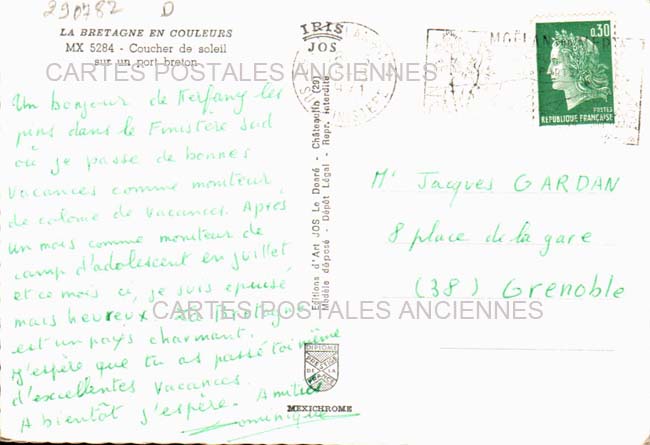 290782 D
LA BRETAGNE EN COULEURS
MX 5284 - Coucher de soleil
sur un port breton
CARTES POSTALES ANCIENNES
Un bonjour de Kerfany les
pins dans le Finistère Sud
où je passe de bonnes
vacances comme moniteur
de colonie de vacances. Après
un mois comme moniteur de
camp d'adolescent en juillet
et ce mois ci, je suis épuisé
mais heureux. La Bretagne
est un pays charmant.
J'espère que tu as passé toi même
d'excellentes vacances.
A bientôt j'espère. Amitiés
Dominique
CARTES POSTALES ANCIENNES
IRIS
JOS
Editions d'Art JOS Le Doaré - Châteaulin (29)
Modèle déposé - Dépôt Légal - Repr. interdite
DIPLOME
PRESTIGE
DE LA
FRANCE
MEXICHROME
MOELAN
0,30
POSTES
REPUBLIQUE FRANCAISE
Mr Jacques GARDAN
8 place de la gare
(38) Grenoble